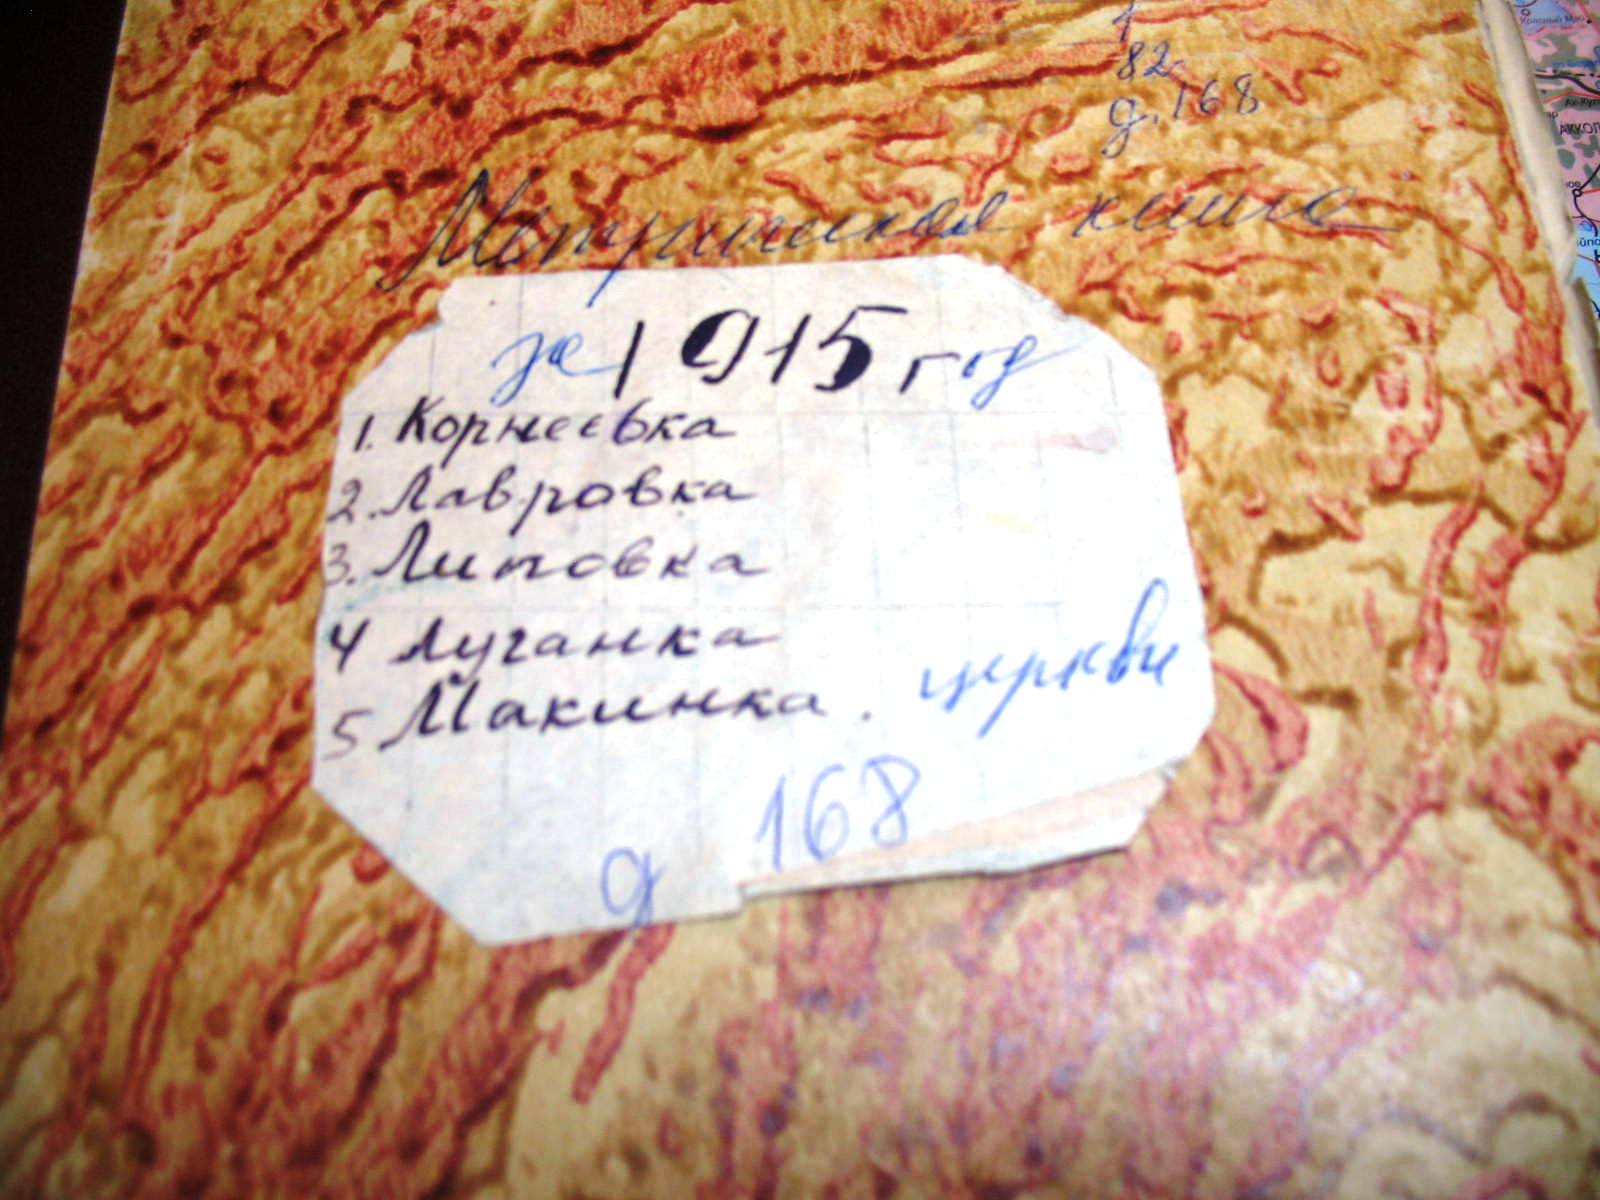 1
82
д. 168
Метрическая книга
за 1915 год
1. Корнеевка
2. Лавровка
3. Липовка
4 Луганка
5 Макинка. церкви
д 168
Красный Маяк
АККОЛ